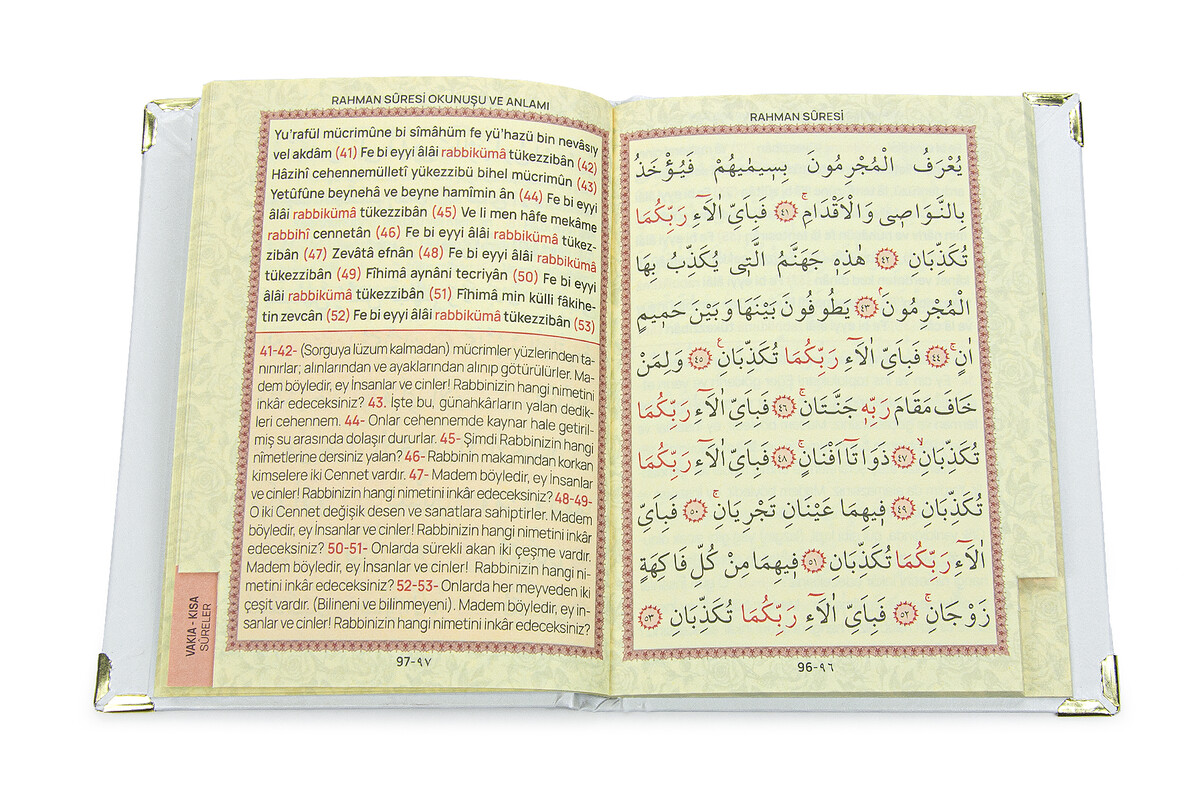 RAHMAN SÛRESİ OKUNUŞU VE ANLAMI
Yu'rafül mücrimûne bi sîmâhüm fe yü'hazü bin nevâsıy
vel akdâm (41) Fe bi eyyi âlâi rabbikümâ tükezzibân (42)
Hâzihî cehennemülletî yükezzibü bihel mücrimûn (43)
Yetûfûne beynehâ ve beyne hamîmin ân (44) Fe bi eyyi
âlâi rabbikümâ tükezzibân (45) Ve li men hâfe mekâme
rabbihî cennetân (46) Fe bi eyyi âlâi rabbikümâ tükez-
zibân (47) Zevâtâ efnân (48) Fe bi eyyi âlâi rabbikümâ
tükezzibân (49) Fîhimâ aynâni tecriyân (50) Fe bi eyyi
âlâi rabbikümâ tükezzibân (51) Fîhimâ min külli fâkihe-
tin zevcân (52) Fe bi eyyi âlâi rabbikümâ tükezzibân (53)
41-42- (Sorguya lüzum kalmadan) mücrimler yüzlerinden ta-
nınırlar; alınlarından ve ayaklarından alınıp götürülürler. Ma-
dem böyledir, ey İnsanlar ve cinler! Rabbinizin hangi nimetini
inkâr edeceksiniz? 43. İşte bu, günahkârların yalan dedik-
leri cehennem. 44- Onlar cehennemde kaynar hale getiril-
miş su arasında dolaşır dururlar. 45- Şimdi Rabbinizin hangi
nîmetlerine dersiniz yalan? 46- Rabbinin makamından korkan
kimselere iki Cennet vardır. 47- Madem böyledir, ey İnsanlar
ve cinler! Rabbinizin hangi nimetini inkâr edeceksiniz? 48-49-
O iki Cennet değişik desen ve sanatlara sahiptirler. Madem
böyledir, ey İnsanlar ve cinler! Rabbinizin hangi nimetini inkâr
edeceksiniz? 50-51- Onlarda sürekli akan iki çeşme vardır.
Madem böyledir, ey İnsanlar ve cinler! Rabbinizin hangi ni-
metini inkâr edeceksiniz? 52-53- Onlarda her meyveden iki
çeşit vardır. (Bilineni ve bilinmeyeni). Madem böyledir, ey in-
sanlar ve cinler! Rabbinizin hangi nimetini inkâr edeceksiniz?
97-٩٧
VAKIA - KISA
SÛRELER
RAHMAN SÛRESİ
يُعْرَفُ الْمُجْرِمُونَ بِسٖيمٰيهُمْ فَيُؤْخَذُ
بِالنَّوَاصٖى وَالْاَقْدَامِۚ ﴿٤١﴾ فَبِاَىِّ اٰلَٓاءِ رَبِّكُمَا
تُكَذِّبَانِ ﴿٤٢﴾ هٰذِهٖ جَهَنَّمُ الَّتٖى يُكَذِّبُ بِهَا
الْمُجْرِمُونَۘ ﴿٤٣﴾ يَطُوفُونَ بَيْنَهَا وَبَيْنَ حَمٖيمٍ
اٰنٍۚ ﴿٤٤﴾ فَبِاَىِّ اٰلَٓاءِ رَبِّكُمَا تُكَذِّبَانِࣖ ﴿٤٥﴾ وَلِمَنْ
خَافَ مَقَامَ رَبِّهٖ جَنَّتَانِۚ ﴿٤٦﴾ فَبِاَىِّ اٰلَٓاءِ رَبِّكُمَا
تُكَذِّبَانِۙ ﴿٤٧﴾ ذَوَاتَٓا اَفْنَانٍۚ ﴿٤٨﴾ فَبِاَىِّ اٰلَٓاءِ رَبِّكُمَا
تُكَذِّبَانِ ﴿٤٩﴾ فٖيهِمَا عَيْنَانِ تَجْرِيَانِۚ ﴿٥٠﴾ فَبِاَىِّ
اٰلَٓاءِ رَبِّكُمَا تُكَذِّبَانِ ﴿٥١﴾ فٖيهِمَا مِنْ كُلِّ فَاكِهَةٍ
زَوْجَانِۚ ﴿٥٢﴾ فَبِاَىِّ اٰلَٓاءِ رَبِّكُمَا تُكَذِّبَانِ ﴿٥٣﴾
96-٩٦